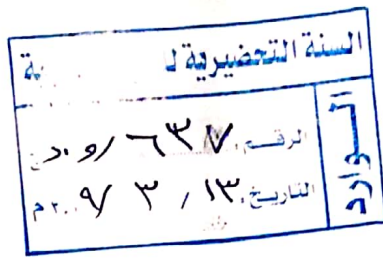 السنة التحضيرية
الوارد
الرقم: ٦٣٧ / و.د
التاريخ: ١٣ / ٣ / ٢٠٠٩ م